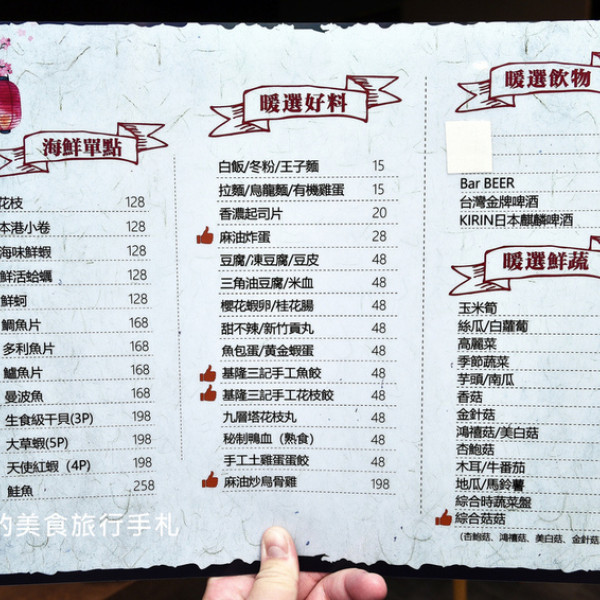 海鮮單點
花枝 128
本港小卷 128
海味鮮蝦 128
鮮活蛤蠣 128
鮮蚵 128
鯛魚片 168
多利魚片 168
鱸魚片 168
曼波魚 168
生食級干貝(3P) 198
大草蝦(5P) 198
天使紅蝦 (4P) 198
鮭魚 258
暖選好料
白飯/冬粉/王子麵 15
拉麵/烏龍麵/有機雞蛋 15
香濃起司片 20
麻油炸蛋 28
豆腐/凍豆腐/豆皮 48
三角油豆腐/米血 48
櫻花蝦卵/桂花腸 48
甜不辣/新竹貢丸 48
魚包蛋/黃金蝦蛋 48
基隆三記手工魚餃 48
基隆三記手工花枝餃 48
九層塔花枝丸 48
秘制鴨血(熟食) 48
手工土雞蛋蛋餃 48
麻油炒烏骨雞 198
暖選飲物
Bar BEER
台灣金牌啤酒
KIRIN日本麒麟啤酒
暖選鮮蔬
玉米筍
絲瓜/白蘿蔔
高麗菜
季節蔬菜
芋頭/南瓜
香菇
金針菇
鴻禧菇/美白菇
杏鮑菇
木耳/牛番茄
地瓜/馬鈴薯
綜合時蔬菜盤
綜合菇菇
(杏鮑菇、鴻禧菇、美白菇、金針菇
的美食旅行手札